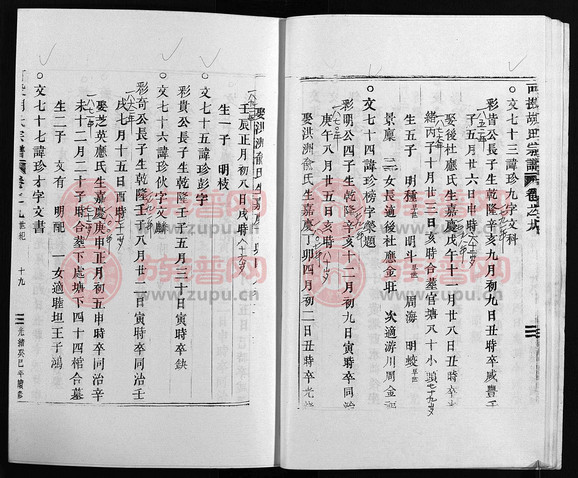 ○文七十三諱珍九字文科
彩昔公長子生乾隆辛亥九月初九日丑時卒咸豐壬
子五月廿六日申時
娶後社應氏生嘉慶戊午十二月廿八日丑時卒光
緒丙子十月廿三日亥時合墓官塘八十小頭
生五子 明種 明斗 周海 明蛟
景稟 二女長適後社應金旺 次適游川周金
○文七十四諱珍榜字榮題
彩明公四子生乾隆辛亥十二月初九日寅時卒同
庚午八月廿五日亥時
娶洪洲俞氏生嘉慶丁卯四月初二日丑時卒光
娶洪洲俞氏生嘉慶
壬辰正月初八日戌時
生一子 明枝
○文七十五諱珍彭字
彩貴公長子生乾隆壬子五月三十日寅時卒缺
○文七十六諱珍伙字文麟
彩奇公長子生乾隆壬子八月廿二日寅時卒同治壬
戌七月十五日酉時
娶芝英應氏生嘉慶庚申正月初五申時卒同治辛
未十二月二十子時合墓下處塘下四十四棺合墓
生二子 文有 明配 一女適睦坦王子鴻
○文七十七諱珍才字文書
十九
光緒癸巳年續修
族谱网
www.zupu.cn
族谱网
www.zupu.cn